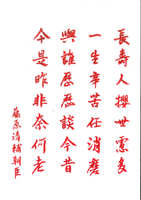 長壽人攖世累多
一生辛苦任消磨
與誰歷歷談今昔
今是昨非奈何老
藤原清輔朝臣